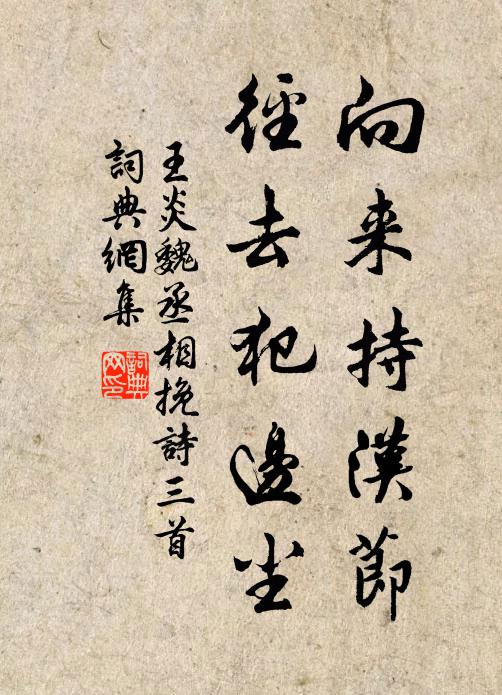 向来持漢節
徑去犯邊尘
王炎魏丞相挽詩三首
詞典網集
詞典网印